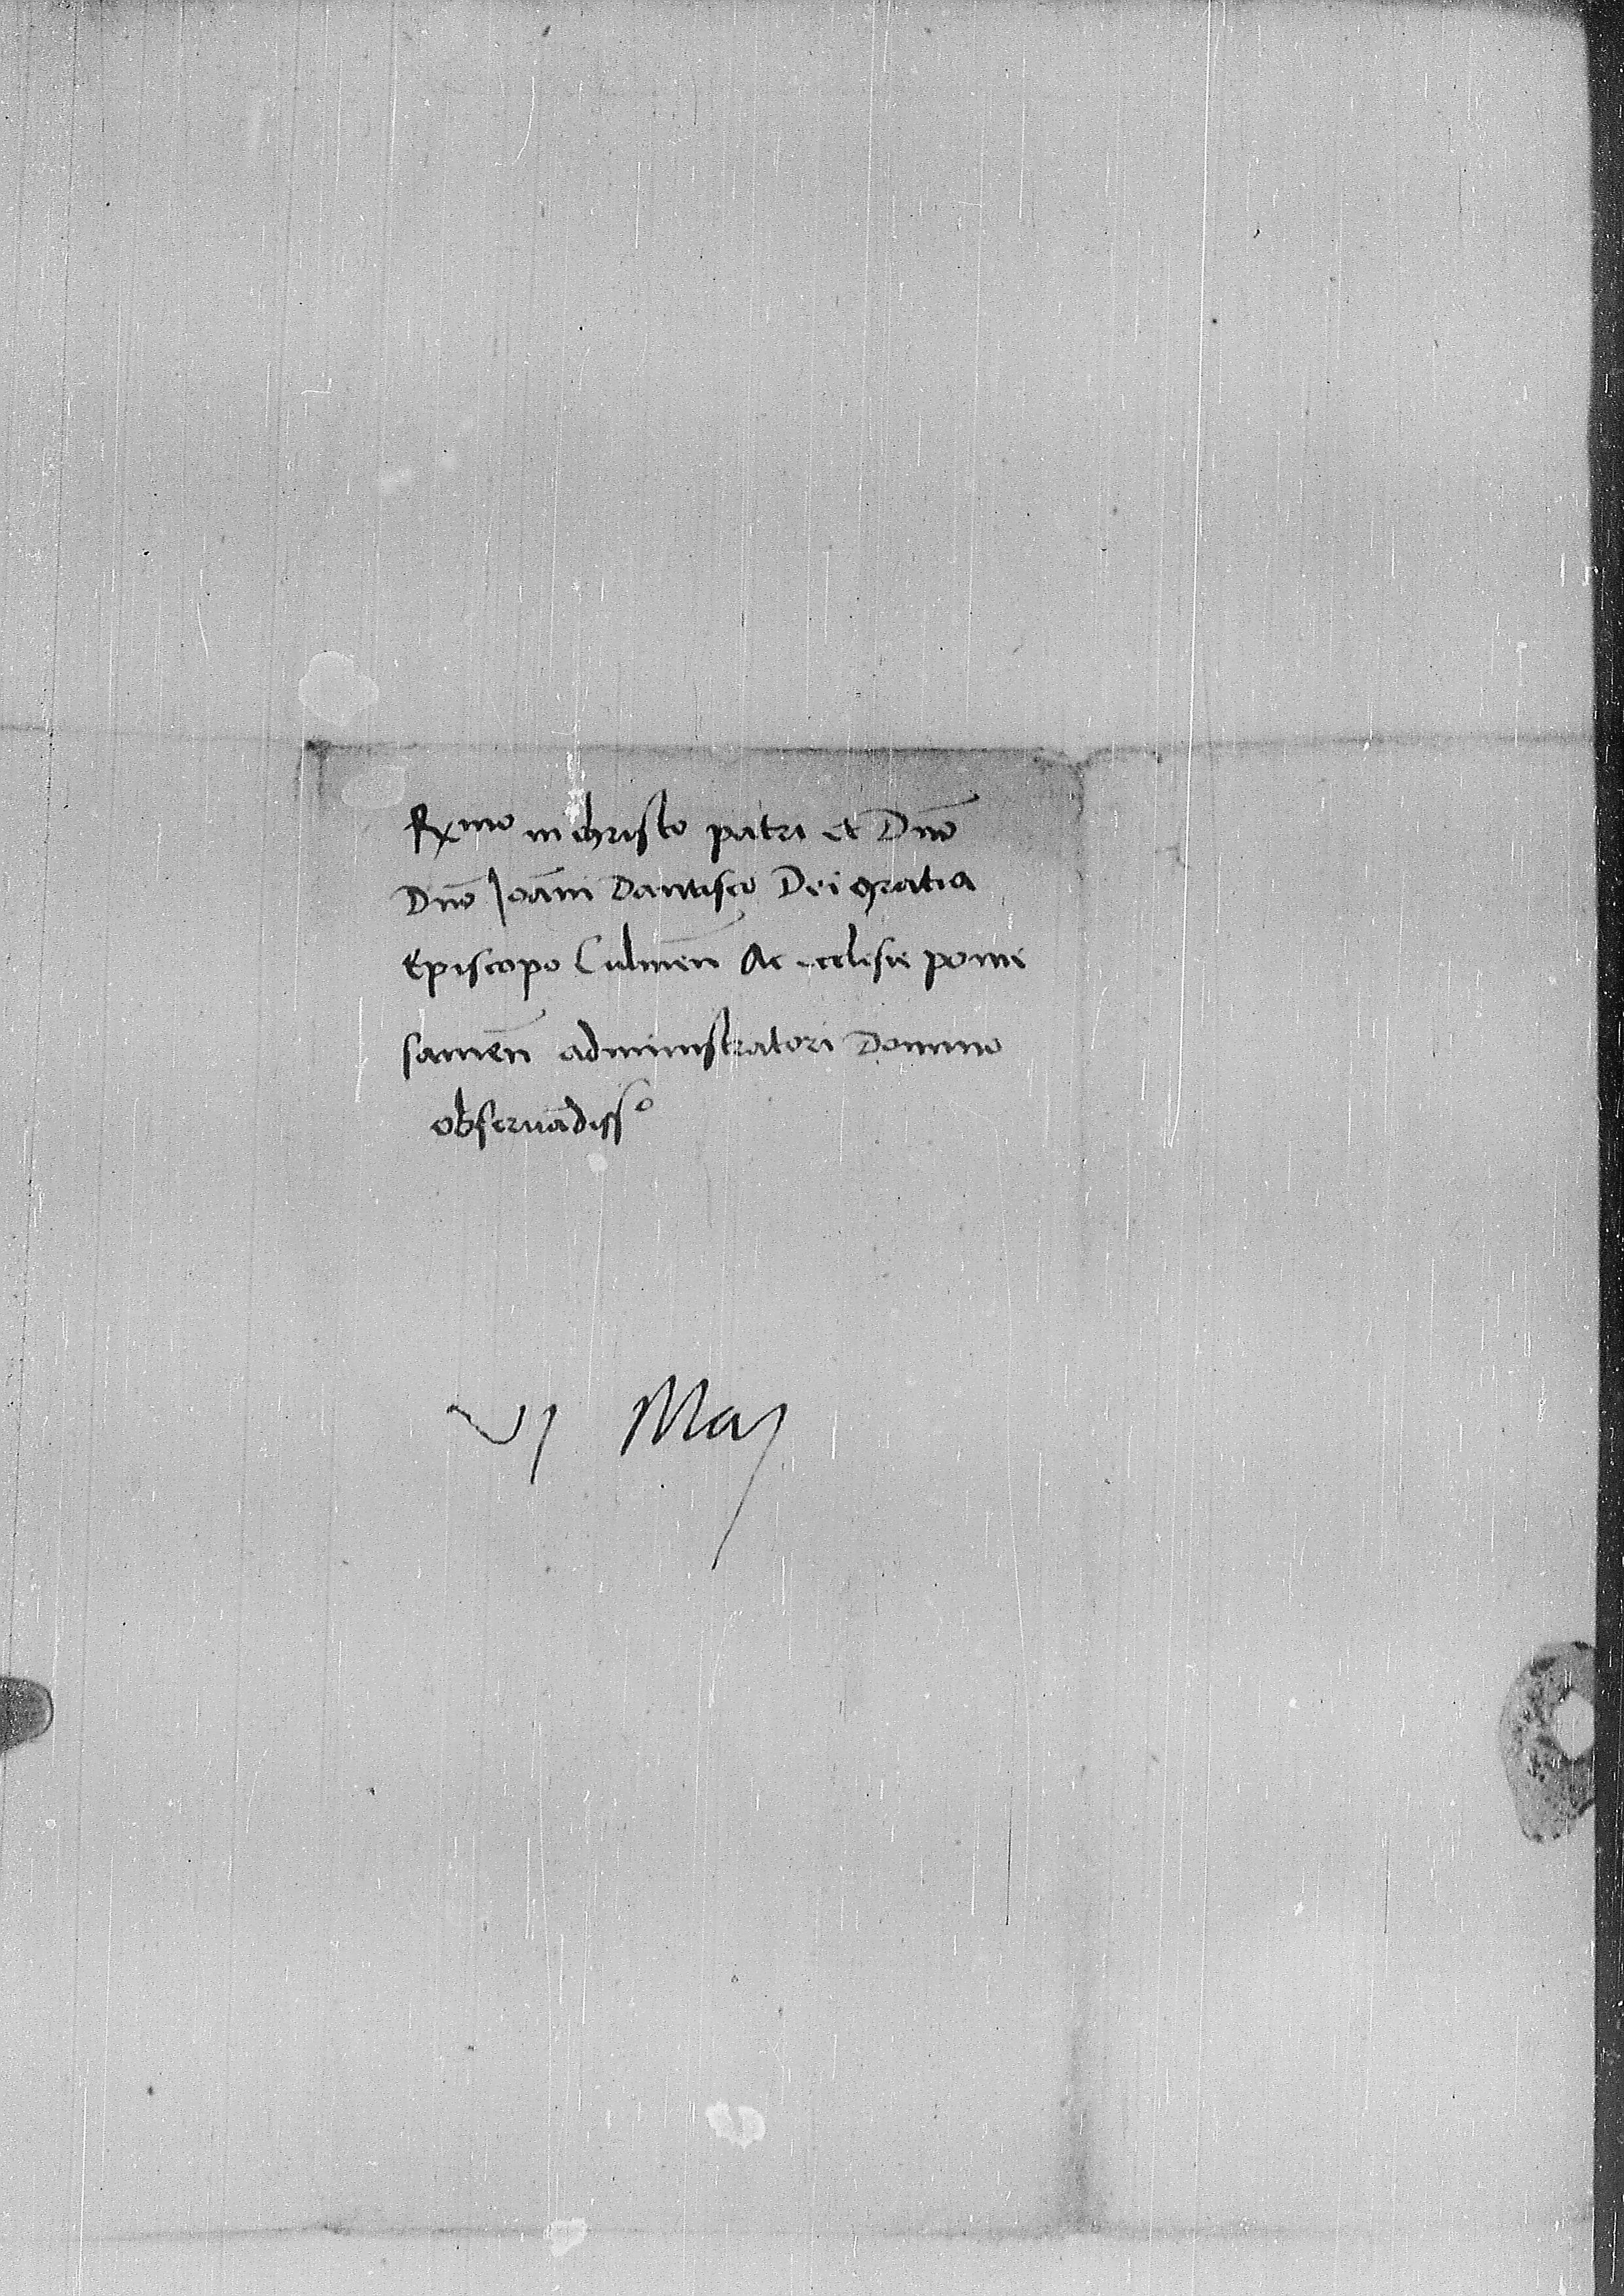 Rx̄mo in christo patri et Dno̅
Dno̅ Joan̅i Dantisco Dei gratia
Episcopo Culmen̅ Ac ecclesie pome
samen̅ administratori Domino
obserua̅diss°
vj Maij